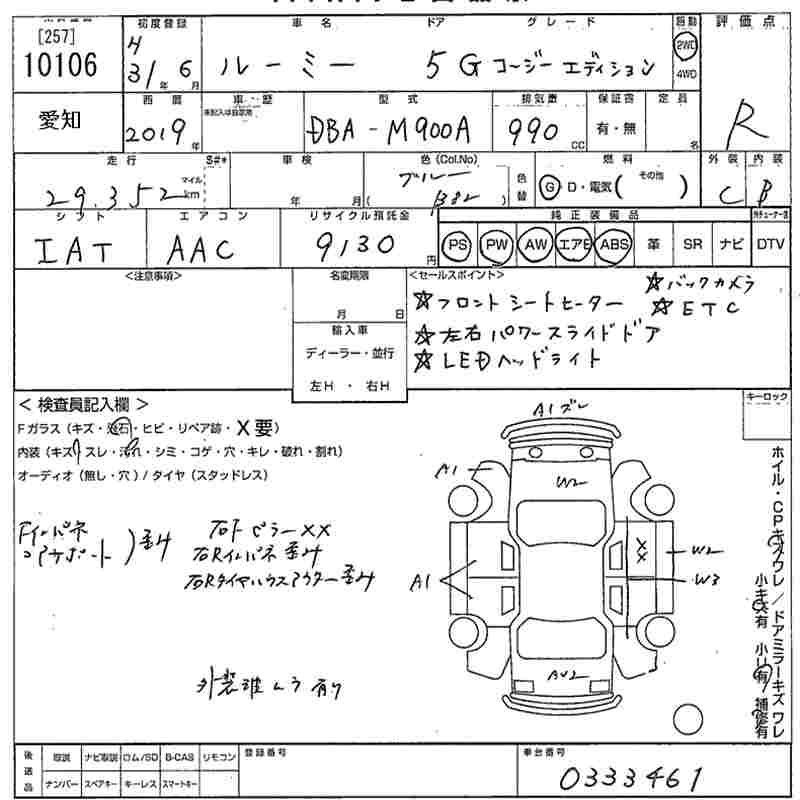 [257] 初度登録 車名 ドア グレード 駆動 評価点
10106 4 31年 6月 ルーミー 5 G コージーエディション 2WD 4WD
愛知 西暦 車歴 型式 排気量 保証書 定員 R
未記入は自家用
2019年 DBA-M900A 990cc 有・無 名
走行 S#* 車検 色(Col.No) 燃料 外装 内装
29.352 マイル km 年 月 ブルー (B82) 色替 G D・電気( その他 ) C B
シフト エアコン リサイクル預託金 純正装備品
IAT AAC 9130円 PS PW AW エアB ABS 革 SR ナビ DTV
<注意事項> 名変期限 <セールスポイント>
月 日 ☆フロントシートヒーター ☆バックカメラ
輸入車 ☆左右パワースライドドア ☆ETC
ディーラー・並行 ☆LEDヘッドライト
左H・右H
<検査員記入欄> キーロック
Fガラス(キズ・飛石・ヒビ・リペア跡・X要)
内装(キズ・スレ・汚れ・シミ・コゲ・穴・キレ・破れ・割れ)
オーディオ(無し・穴)/タイヤ(スタッドレス)
A1ズレ
A1 W2
Fインパネ
コアサポート )歪み
右FピラーXX
右Rインパネ歪み
右Rタイヤハウスアウター歪み
A1 XX W2
W3
AU2
外装 ムラ有り
ホイル・CPキズワレ/ドアミラーキズワレ
小キズ有 小凹有 補修有
後送品 取説 ナビ取説 ロム/SD B-CAS リモコン 登録番号 車台番号
ナンバー スペアキー キーレス スマートキー 0333461